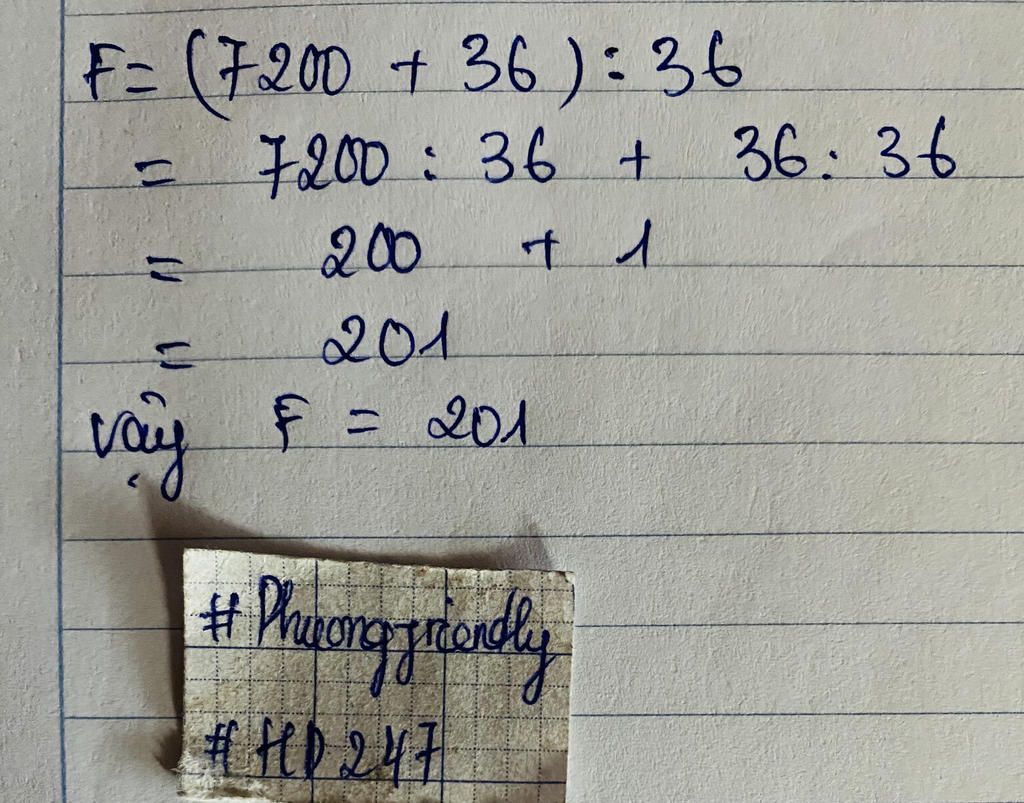 F = (7200 + 36) : 36
= 7200 : 36 + 36 : 36
= 200 + 1
= 201
vậy F = 201
# Phuongfriendly
# HD 247